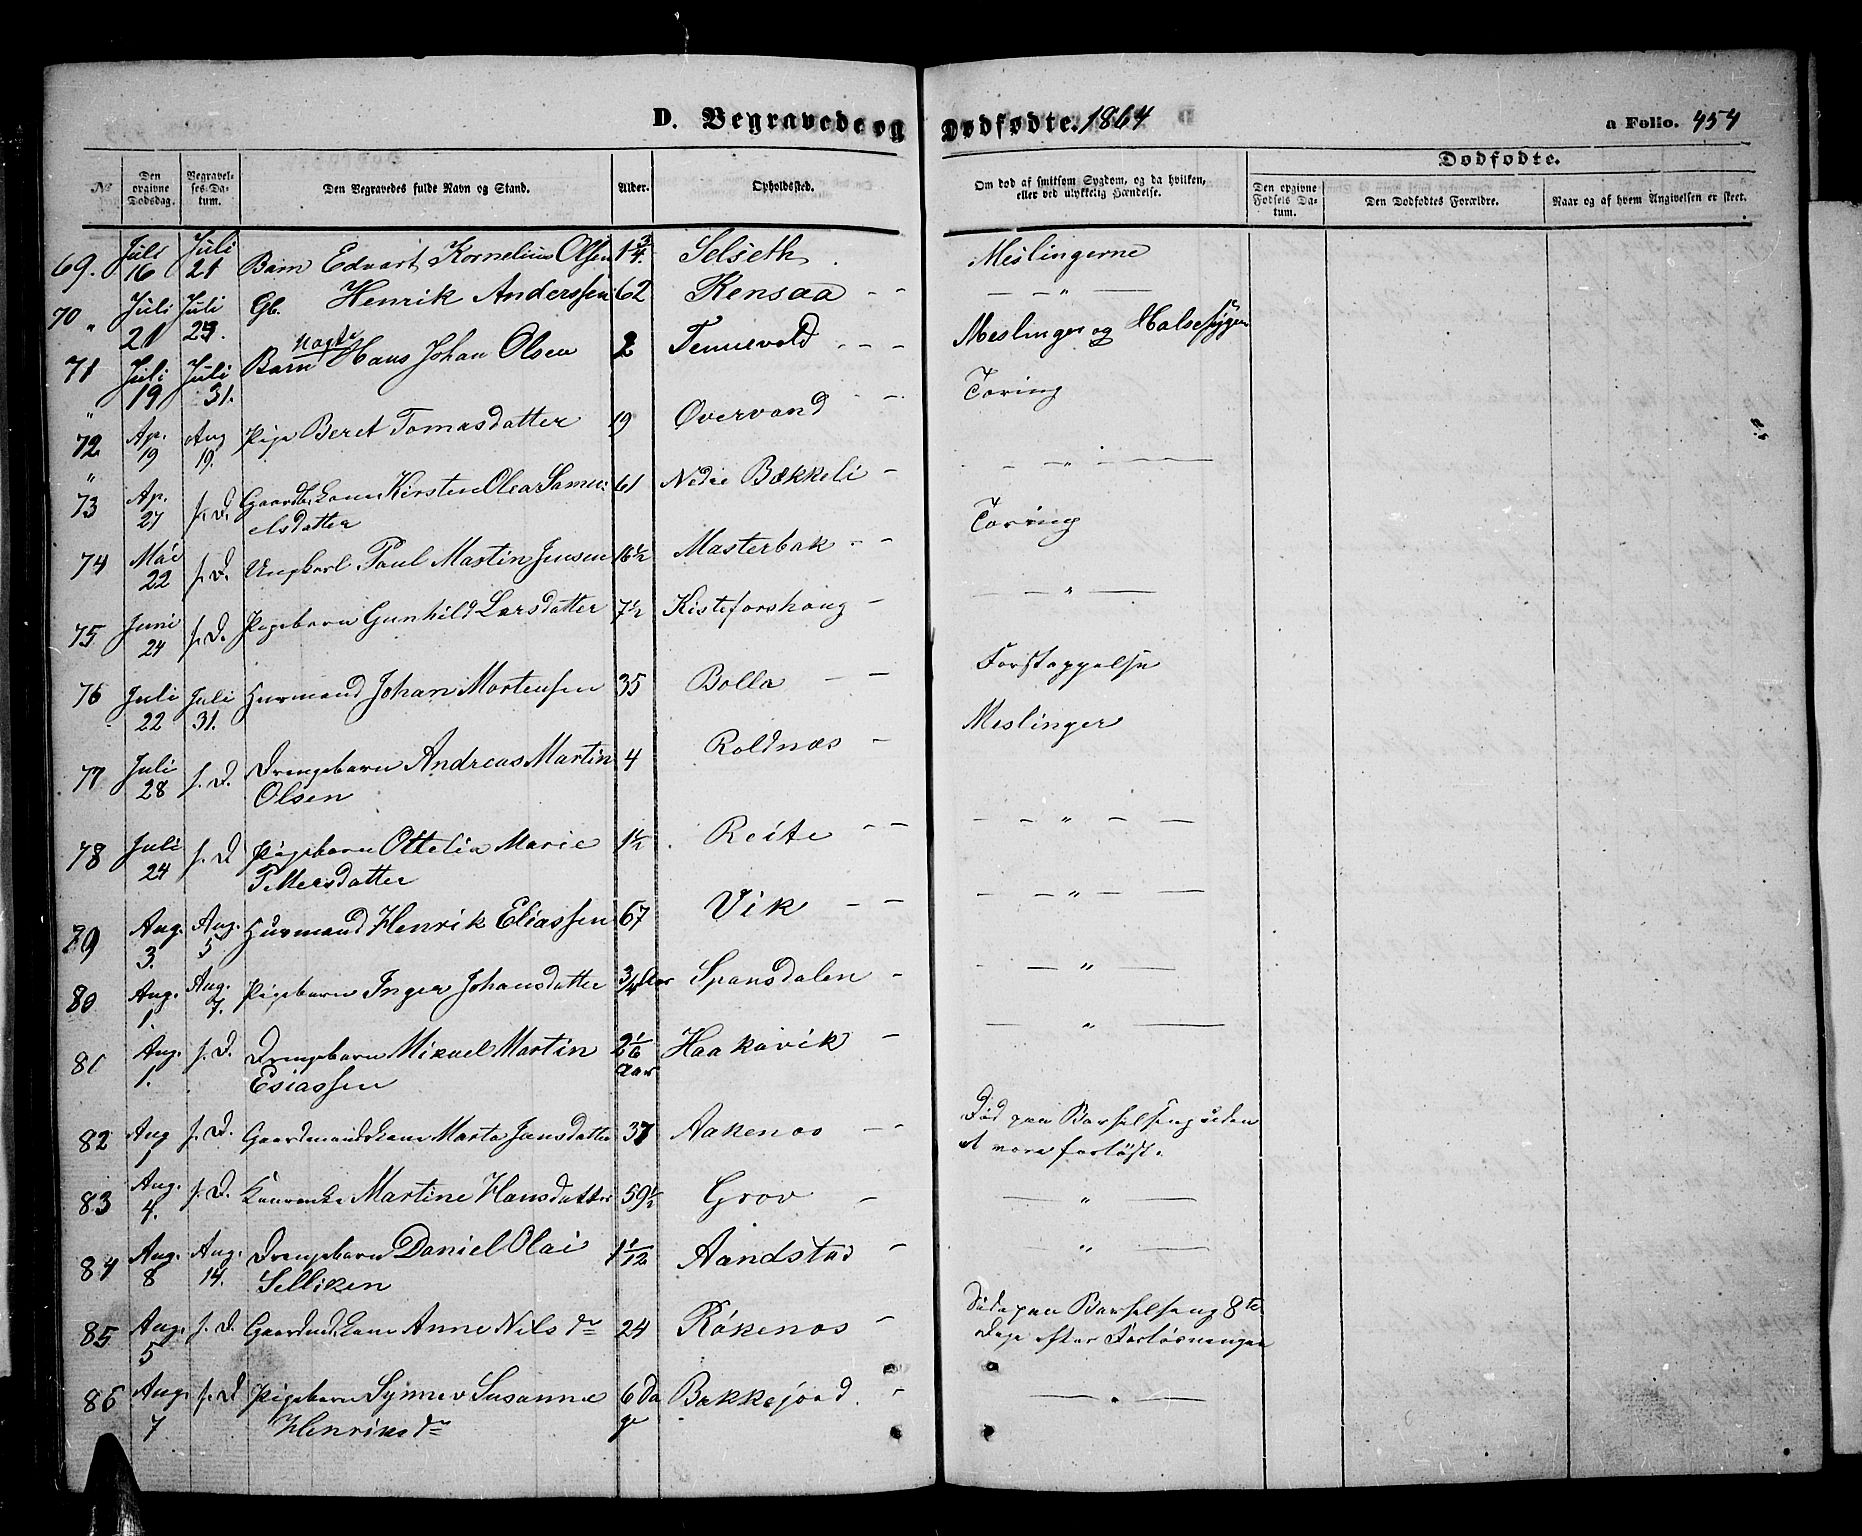 D. Begravede og Dødfødte. 1864
a Folio. 454
No
Den opgivne Dødsdag.
Begravelses-Datum.
Den Begravedes fulde Navn og Stand.
Alder.
Opholdssted.
Om død af smitsom Sygdom, og da hvilken, eller ved ulykkelig Hændelse.
Dødfødte.
Den opgivne Fødsels Datum.
Den Dødfødtes Forældre.
Naar og af hvem Angivelsen er skeet.
69. Juli 16 Juli 21 Barn Edvart Kornelius Olsen 1 3/4 Selseth Meslingerne
70 Juli 21 Juli 23. Gb. Henrik Anderssen 62 Rensaa - - — - " —
71 Juli 19 Juli 31. Barn Hans Johan Olsen 2 Tennevold - - - Meslinger og Halsesygen
72 Ap. 19 Aug 19. Pige Beret Tomasdatter 19 Overvand - Tæring
73 Ap. 27 s. D. Kirsten Olea Samu-
elsdatter 61 Nedre Bækkeli - - - " —
74 Mai 22 s. D. Ungkarl Paul Martin Jensen 16 1/2 Masterbak - - Tæring
75 Juni 24 s. D. Pigebarn Gunhild Larsdatter 7 1/2 Kisteforshaug - - - " —
76 Juli 22 Juli 31. Huusmand Johan Mortensen 35 Bolla - - Forstoppelse
77 Juli 28 s. D. Drengebarn Andreas Martin
Olsen 4 Roldnæs - Meslinger
78 Juli 24 s. D Pigebarn Ottelia Marie
Pettersdatter 1 1/2 Reite - - - - " - -
79 Aug. 3. Aug. 5 Huusmand Henrik Eliassen 67 Vik - - - - " - —
80 Aug. 1. Aug. 7. Pigebarn Inger Johansdatter 3/4 Aar Spansdalen - - — " —
81 Aug. 1. s. D. Drengebarn Mikael Martin
Esiassen 2 1/6 Aar Haakavik - — " —
82 Aug 1 s. D. Gaardmandskone Marta Jensdatter 37 Aakenes - - Død paa Barselseng uden
at være forløst.
83 Aug. 4. s. D. Martine Hansdatter 59 1/2 Grov - — " —
84 Aug. 8 Aug. 14. Drengebarn Daniel Olai
Selliken 1 1/12 Aandstad - — " —
85 Aug. 5 s. D. Gaardmdskone Anne Nils dr 24 Røkenes - Døde paa Barselseng 8te
Dage efter Forløsningen
86 Aug. 7 s. D Pigebarn Synnev Susanne
Henriks dr 6 Da
ge Bakkejord - — " —